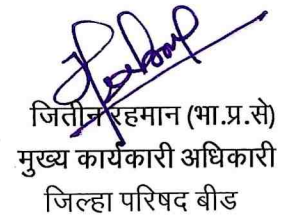 जितीन रहमान (भा.प्र.से)
मुख्य कार्यकारी अधिकारी
जिल्हा परिषद बीड